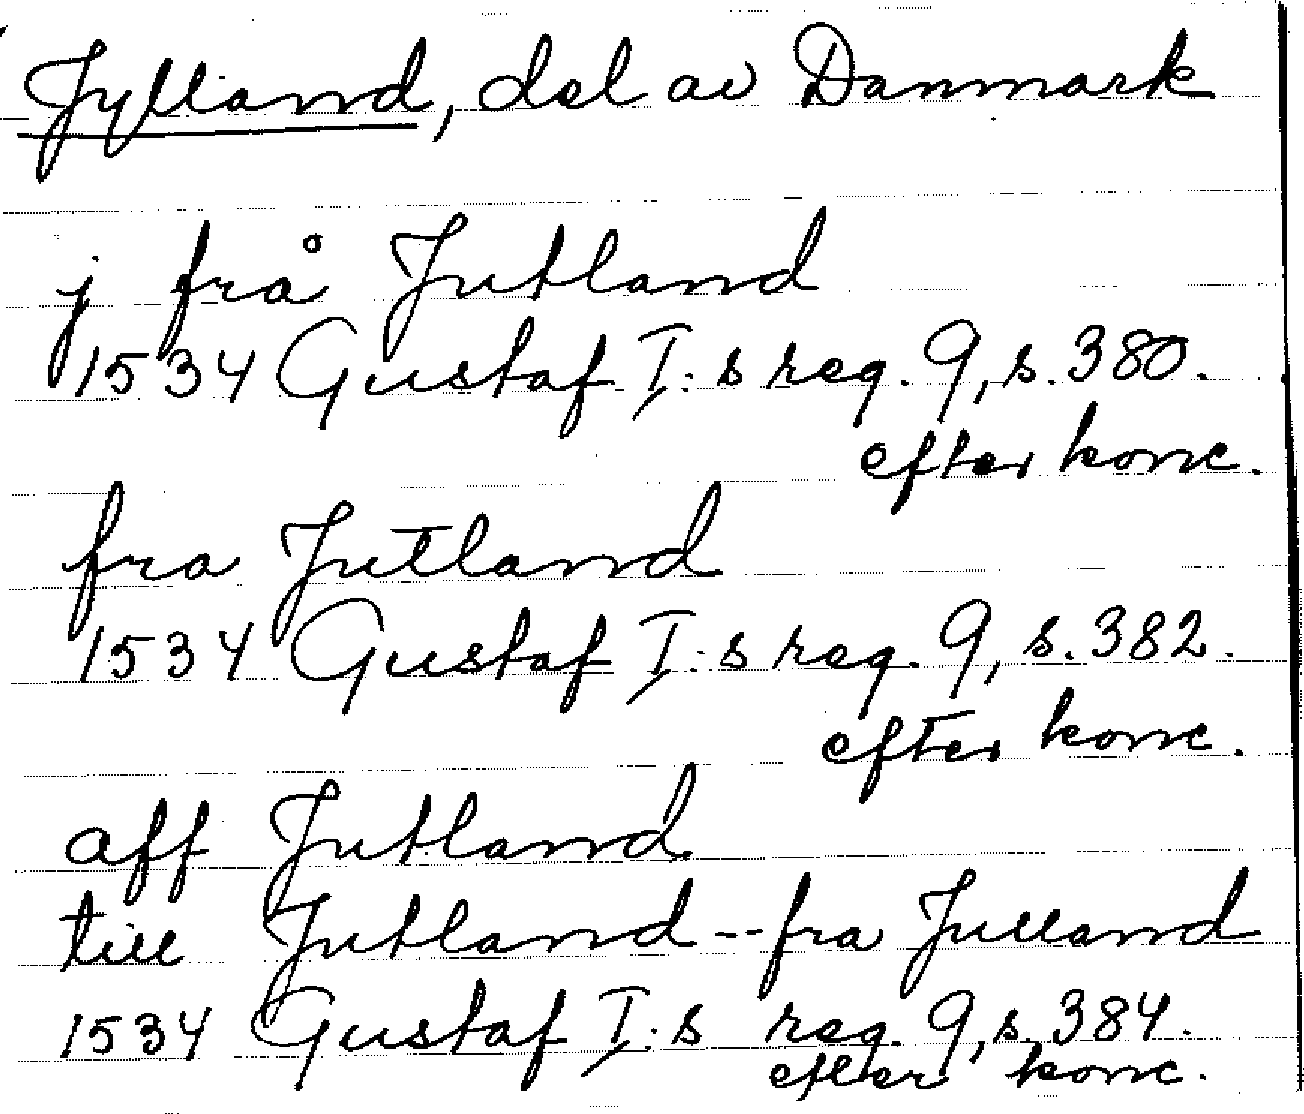 Jylland, del av Danmark
j frå Jutland
1534 Gustaf I:s reg. 9, s. 380.
efter konc.
fra Jutland
1534 Gustaf I:s reg. 9, s. 382.
efter konc.
aff Jutland
till Jutland -- fra Julland
1534 Gustaf I:s reg. 9, s. 384.
efter konc.